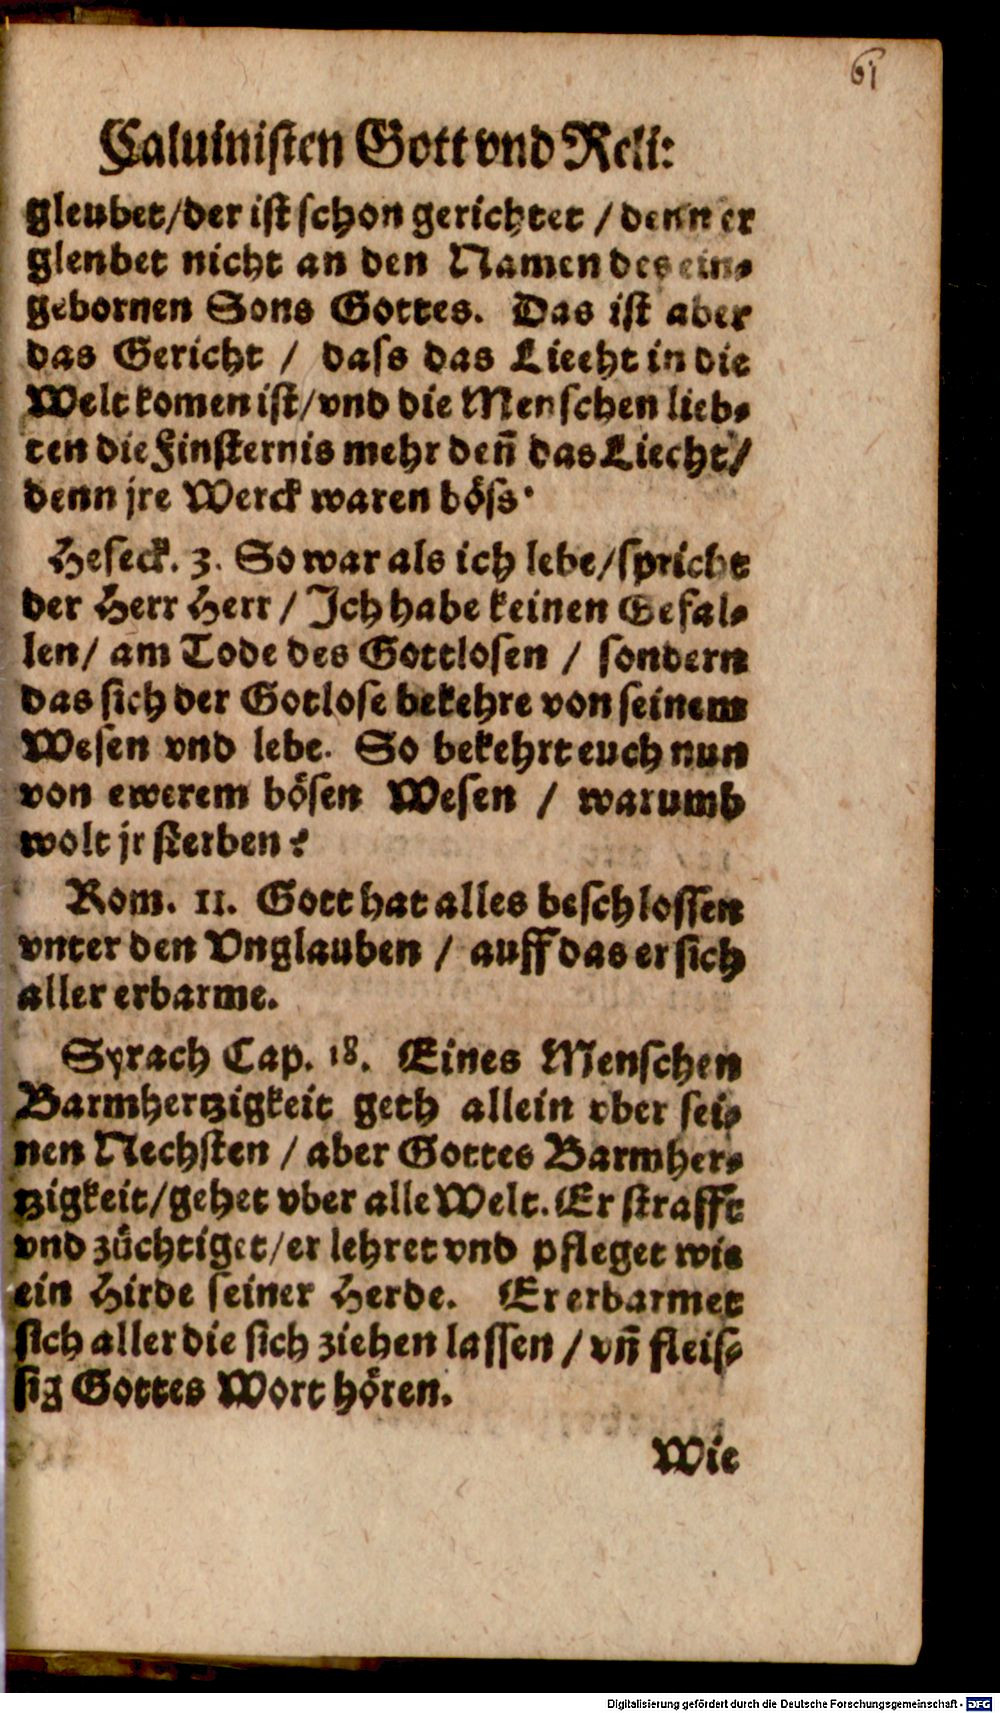 61
Caluinisten Gott vnd Reli:
gleubet/der ist schon gerichtet / denn er
glenbet nicht an den Namen des ein⸗
gebornen Sons Gottes. Das ist aber
das Gericht / dass das Liecht in die
Welt komen ist/vnd die Menschen lieb⸗
ten die Finsternis mehr deñ das Liecht/
denn jre Werck waren böss.
Heseck. 3. So war als ich lebe/spricht
der Herr Herr / Ich habe keinen Gefal⸗
len/ am Tode des Gottlosen / sondern
das sich der Gotlose bekehre von seinem
Wesen vnd lebe. So bekehrt euch nun
von ewerem bösen Wesen / warumb
wolt jr sterben?
Rom. 11. Gott hat alles beschlossen
vnter den Vnglauben / auff das er sich
aller erbarme.
Syrach Cap. 18. Eines Menschen
Barmhertzigkeit geth allein vber sei⸗
nen Nechsten / aber Gottes Barmher⸗
tzigkeit/gehet vber alle Welt. Er strafft
vnd züchtiget/er lehret vnd pfleget wie
ein Hirde seiner Herde. Er erbarmet
sich aller die sich ziehen lassen / vñ fleis⸗
sig Gottes Wort hören.
Wie
Digitalisierung gefördert durch die Deutsche Forschungsgemeinschaft - DFG